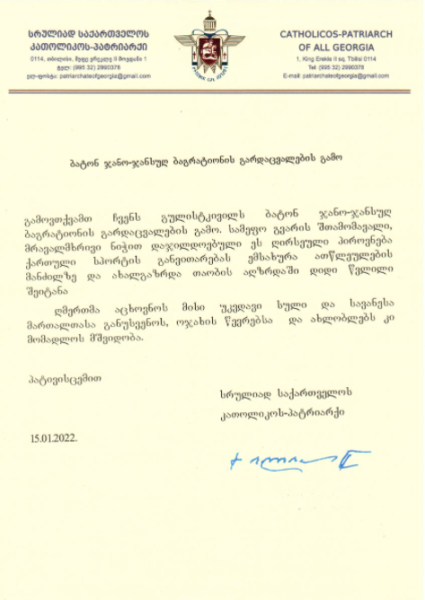 სრულიად საქართველოს
კათოლიკოს-პატრიარქი
0114, თბილისი, მეფე ერეკლე II მოედანი 1
ტელ: (995 32) 2990378
ელ-ფოსტა: patriarchateofgeorgia@gmail.com
CATHOLICOS-PATRIARCH
OF ALL GEORGIA
1, King Erekle II sq. Tbilisi 0114
Tel: (995 32) 2990378
E-mail: patriarchateofgeorgia@gmail.com
ბატონ ჯანო-ჯანსუღ ბაგრატიონის გარდაცვალების გამო
გამოვთქვამთ ჩვენს გულისტკივილს ბატონ ჯანო-ჯანსუღ
ბაგრატიონის გარდაცვალების გამო. სამეფო გვარის შთამომავალი,
მრავალმხრივი ნიჭით დაჯილდოებული ეს ღირსეული პიროვნება
ქართული სპორტის განვითარებას ემსახურა ათწლეულების
მანძილზე და ახალგაზრდა თაობის აღზრდაში დიდი წვლილი
შეიტანა
ღმერთმა აცხოვნოს მისი უკვდავი სული და სავანესა
მართალთასა განუსვენოს, ოჯახის წევრებსა და ახლობლებს კი
მომადლოს მშვიდობა.
პატივისცემით
სრულიად საქართველოს
კათოლიკოს-პატრიარქი
15.01.2022.